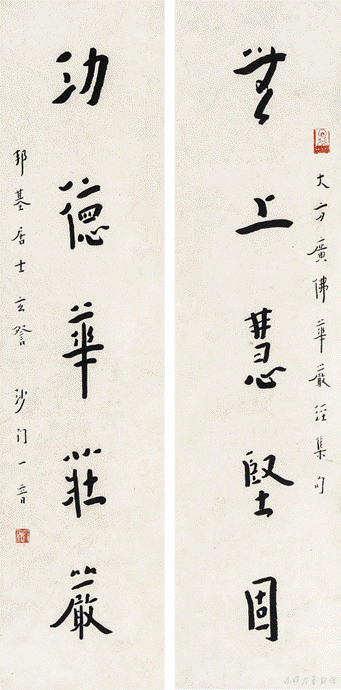 大方廣佛華嚴經集句
無上慧堅固
功德華莊嚴
邦基居士玄詧 沙门一音